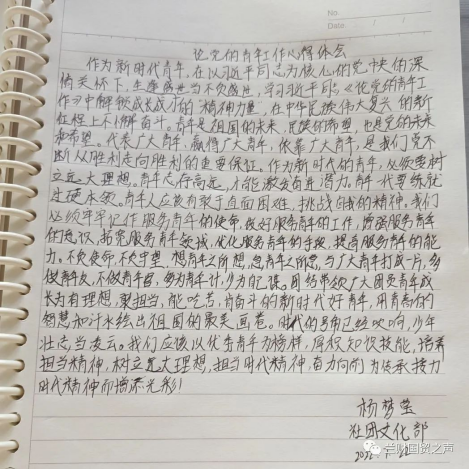 No.
Date
论党的青年工作心得体会
作为新时代青年,在以习近平同志为核心的党中央的深
情关怀下,生逢盛世当不负盛世,学习近平同志《论党的青年工
作》中解锁成长成才的“精神力量”,在中华民族伟大复兴的新
征程上不懈奋斗。青年是祖国的未来,民族的希望,也是党的未来
和希望。代表广大青年,赢得广大青年,依靠广大青年,是我们党不
断从胜利走向胜利的重要保证。作为新时代的青年,必须要树
立远大理想。青年志存高远,才能激发奋进潜力。青年代要练就
过硬本领。青年人应该有敢于直面困难,挑战自我的精神。我们
必须牢牢记作服务青年的使命,做好服务青年的工作,增强服务青年
的意识,拓宽服务青年领域,优化服务青年的手段,提高服务青年的能
力。不负使命,不负守望,想青年之所想,急青年之所急,与广大青年打成一片,多
做青年友,不做青年官,多为青年计,少为自己谋。团结带领广大团员青年成
长为有理想,敢担当,能吃苦,肯奋斗的新时代好青年,用青春的
智慧和汗水绘出祖国的最美画卷。时代的号角已经吹响,少年
壮志当凌云。我们应该以优秀青年为榜样,厚积知识技能,培养
担当精神,树立远大理想,担当时代精神,奋力向前为传承接力
时代精神而增添光彩!
杨梦莹
社团文化部
兰财国贸之声